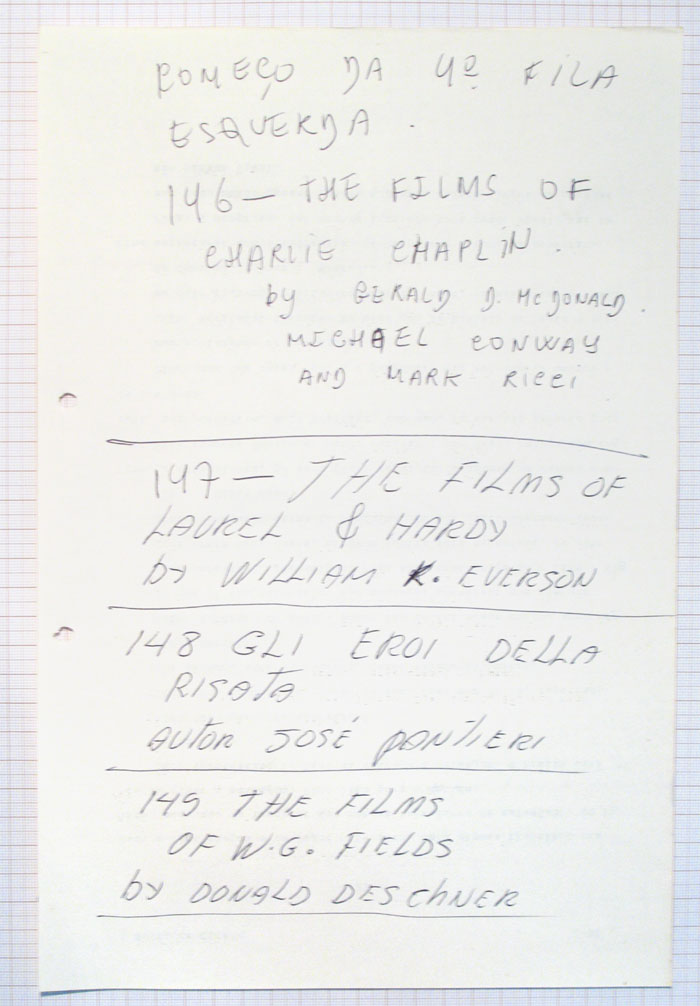 COMEÇO DA 4º FILA
ESQUERDA .
146 — THE FILMS OF
CHARLIE CHAPLIN .
by GERALD D. McDONALD .
MICHAEL CONWAY
AND MARK RICCI
147 — THE FILMS OF
LAUREL & HARDY
by WILLIAM K. EVERSON
148 GLI EROI DELLA
RISATA
AUTOR JOSÉ PANTIERI
149 THE FILMS
OF W.G. FIELDS
by DONALD DESCHNER